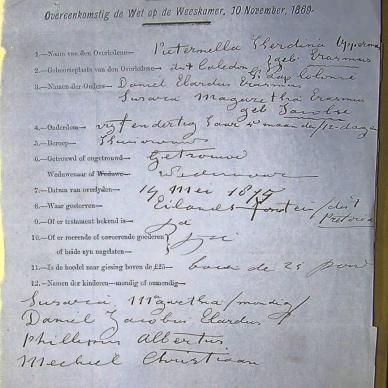 Overeenkomstig de Wet op de Weeskamer, 10 November, 1869.
1.—Naam van den Overledene— Pieternella Gerdina Opperman
geb Erasmus
2.—Geboorteplaats van den Overledene— dist Caledon Kaap Colonie
3.—Namen der Ouders— Daniel Elardus Erasmus
Susara Magaretha Erasmus
geb Jacobse
4.—Ouderdom— vyf en dertig Jaar maande/12 dag
5.—Beroep— Huisvrouw
6.—Getrouwd of ongetrouwd— Getrouwd
Weduwnaar of Weduwe— Weduwnaar
7.—Datum van overlyden— 14 Mei 18
8.—Waar gestorven— Eilands fontein/dist
Pretoria
9.—Of er testament bekend is— ja
10.—Of er roerende of onroerende goederen
of beide zyn nagelaten— ja
11.—Is de boedel naar gissing boven de £25— boven de 25 pond
12.—Namen der kinderen—mondig of onmondig—
Susara Magaretha/mondig/
Daniel Jacobus Elardus
Phillippus Albertus
Mechiel Christiaan